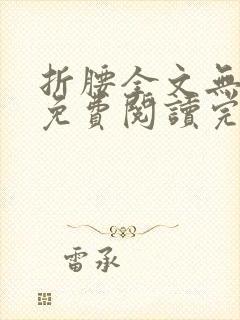 折腰全文無
免費閱讀完
雷承